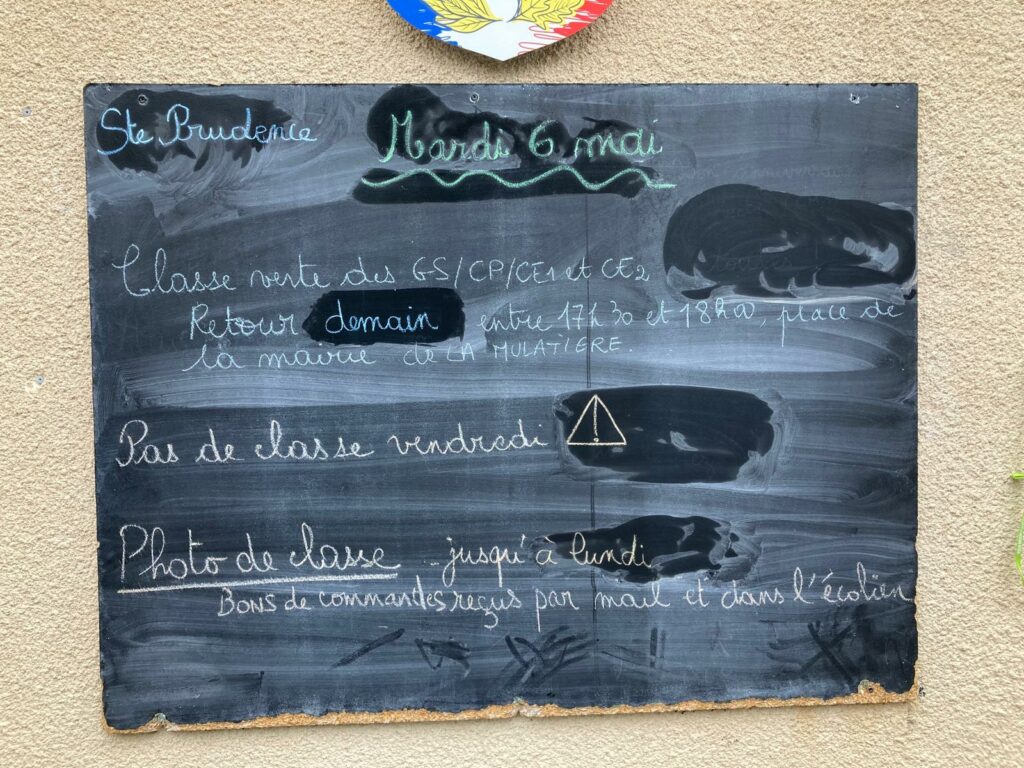 Ste Prudence
Mardi 6 mai
Classe verte des GS/CP/CE1 et CE2
Retour demain entre 17h30 et 18h00, place de
la mairie de LA MULATIERE.
Pas de classe vendredi
Photo de classe .. jusqu'à lundi
Bons de commandes reçus par mail et dans l'écolien